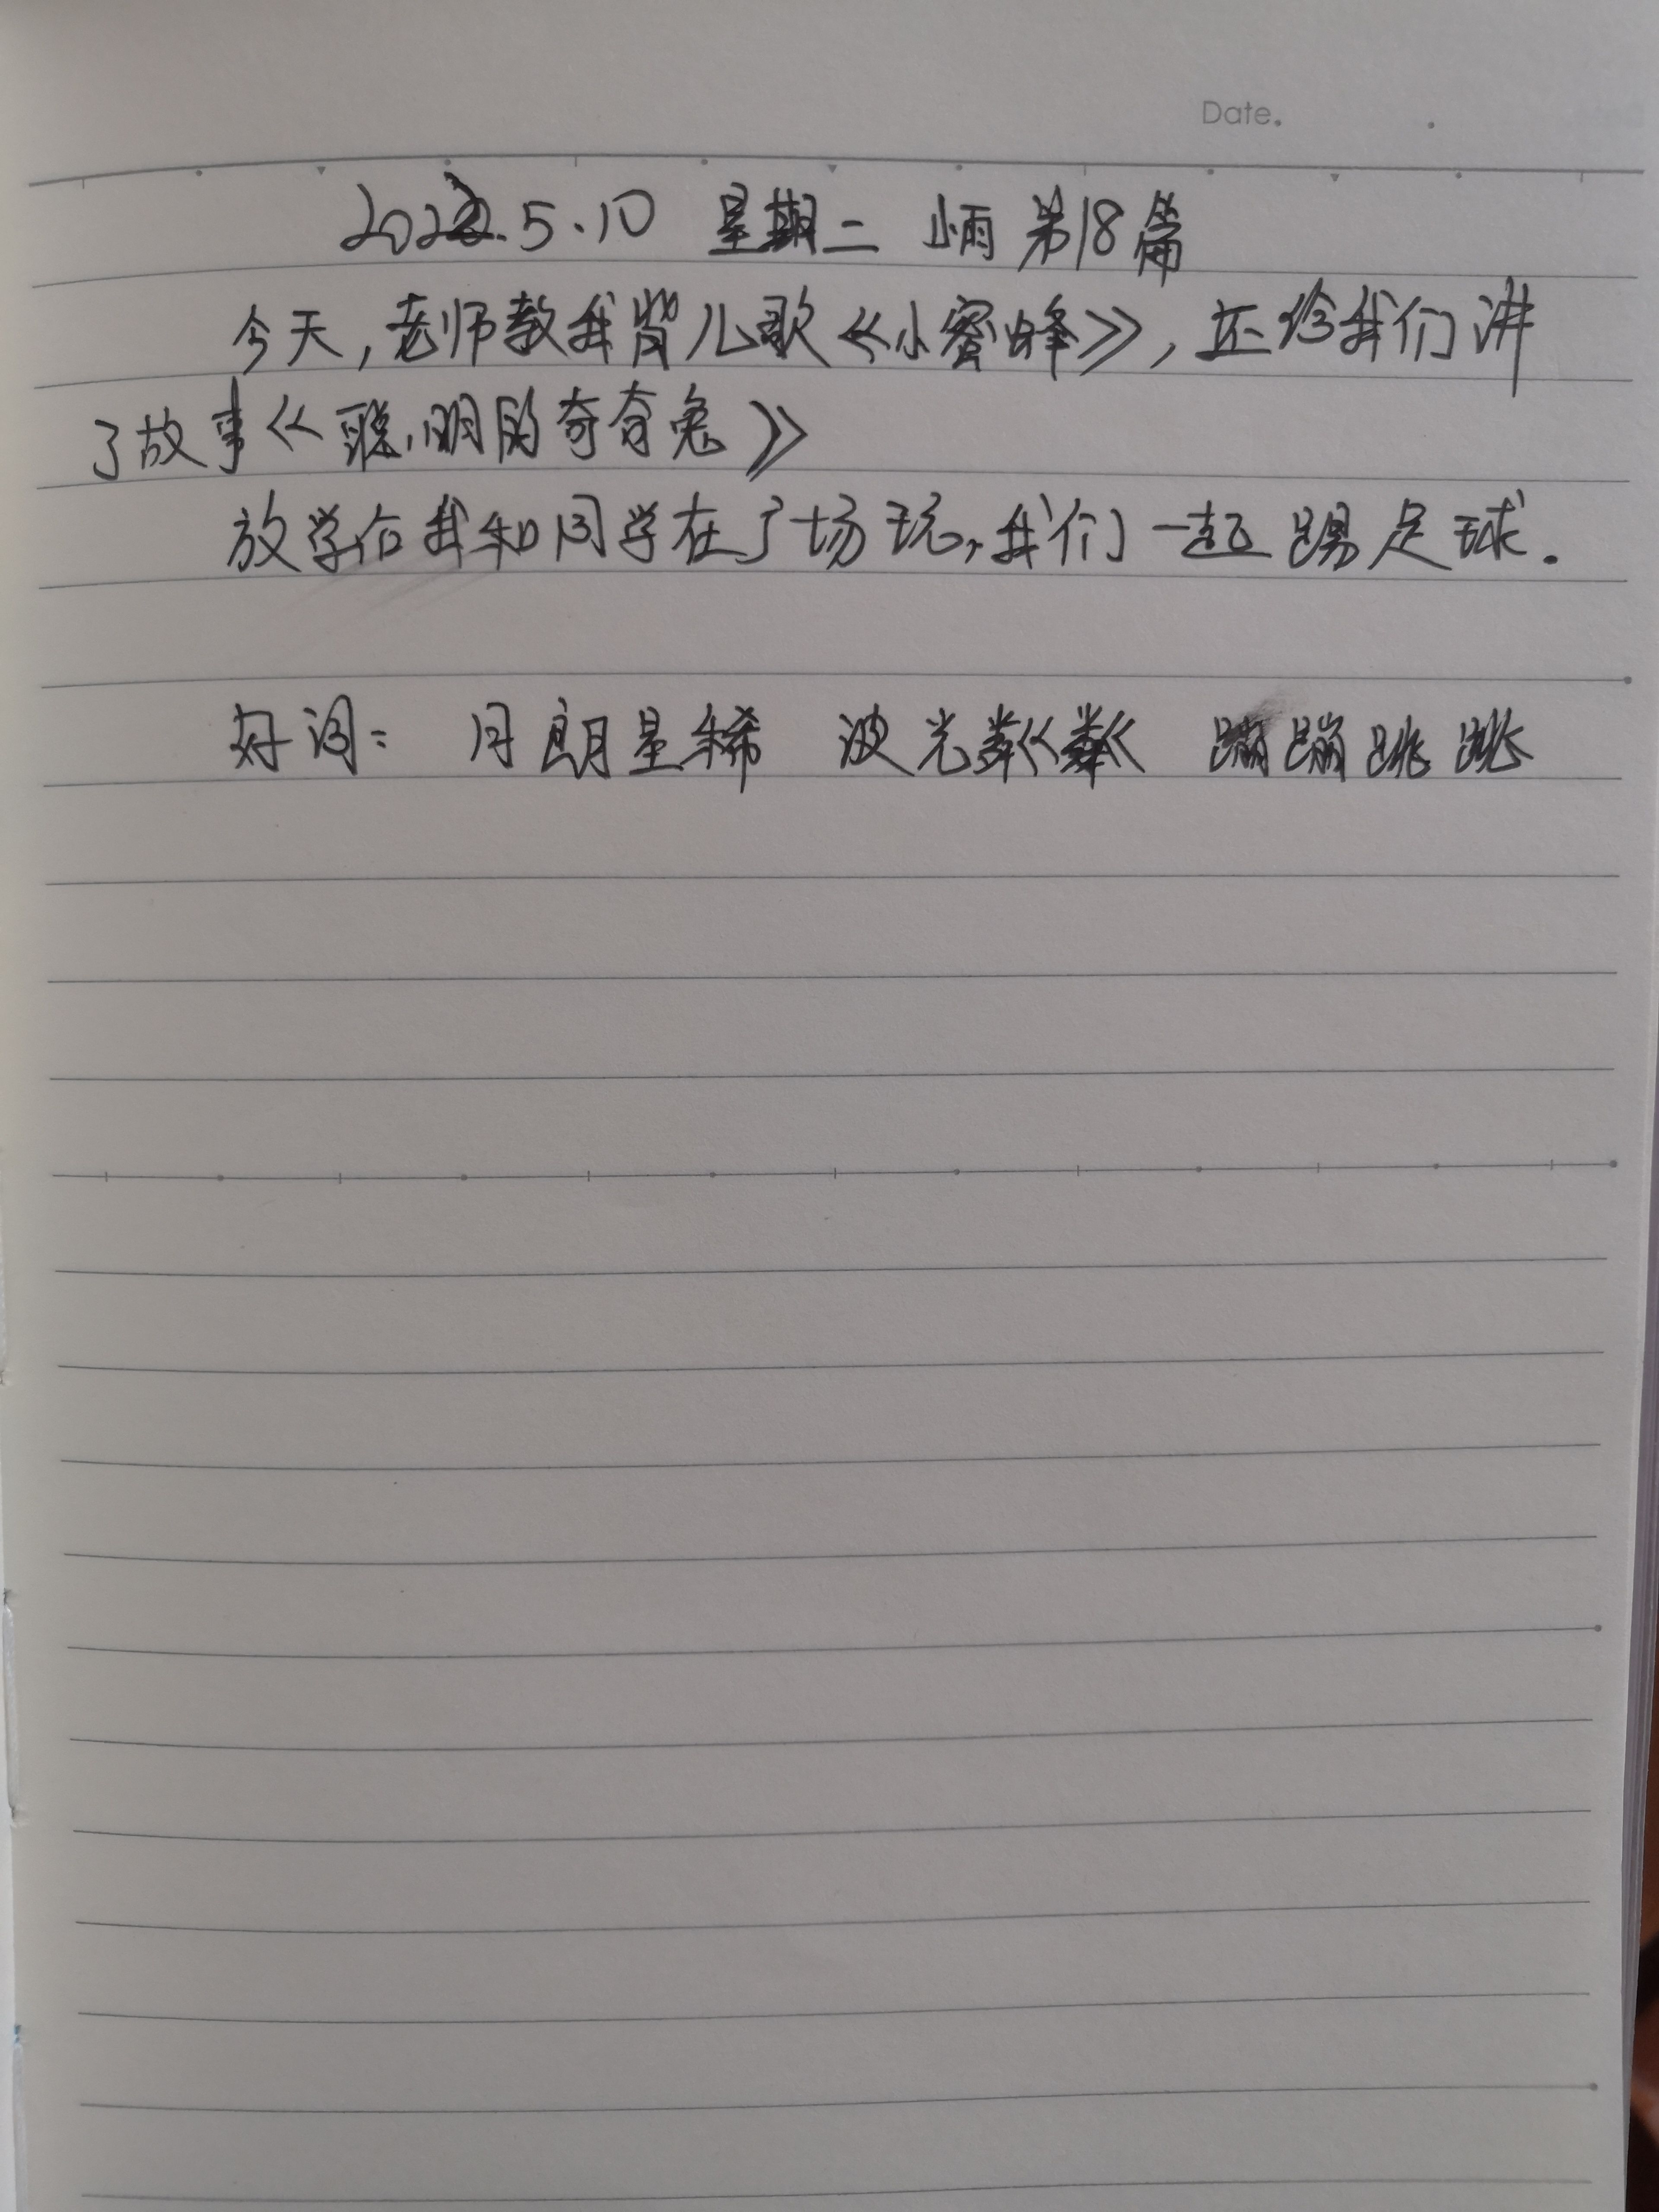 Date.
2022.5.10 星期二 小雨 第18篇
今天,老师教我背儿歌《小蜜蜂》,还给我们讲
了故事《聪明的奇奇兔》
放学后我和同学在广场玩,我们一起踢足球.
好词: 月朗星稀 波光粼粼 蹦蹦跳跳